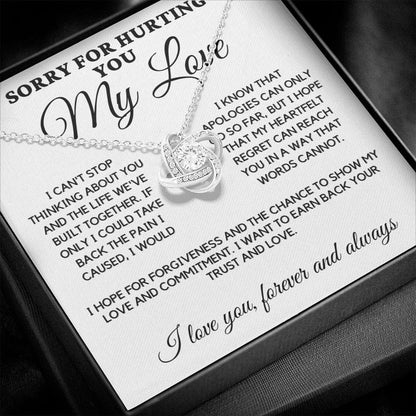 SORRY FOR HURTING
YOU
My Love
I CAN'T STOP
THINKING ABOUT YOU
AND THE LIFE WE'VE
BUILT TOGETHER. IF
ONLY I COULD TAKE
BACK THE PAIN I
CAUSED, I WOULD
I KNOW THAT
APOLOGIES CAN ONLY
GO SO FAR, BUT I HOPE
THAT MY HEARTFELT
REGRET CAN REACH
YOU IN A WAY THAT
WORDS CANNOT.
I HOPE FOR FORGIVENESS AND THE CHANCE TO SHOW MY
LOVE AND COMMITMENT. I WANT TO EARN BACK YOUR
TRUST AND LOVE.
I love you, forever and always